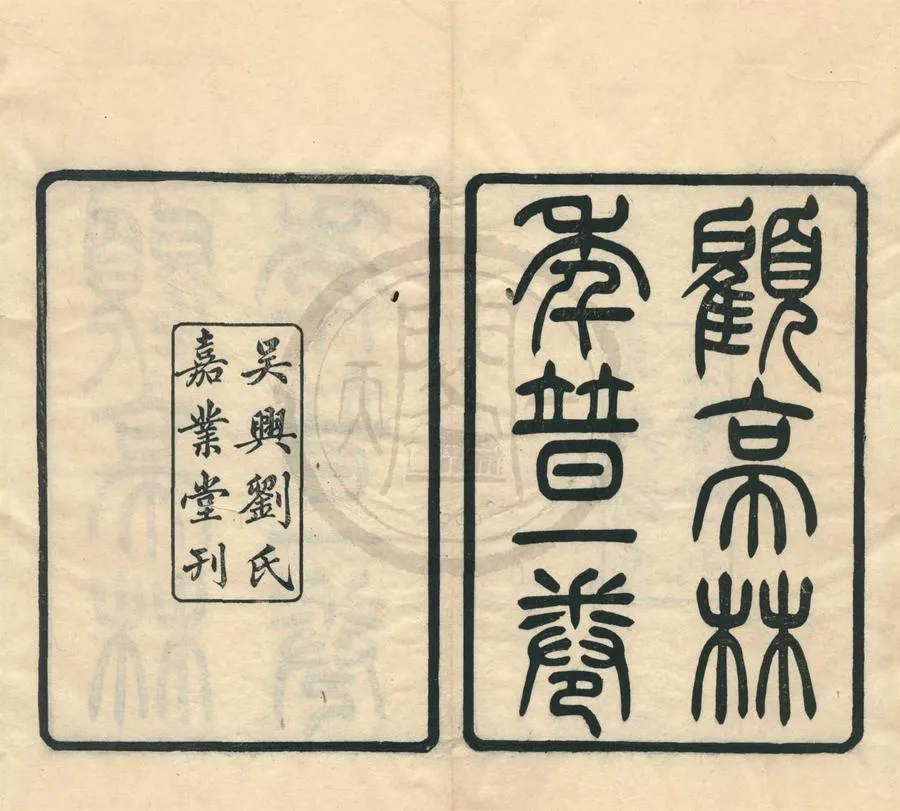 顧亭林
年普一卷
吳興劉氏
嘉業堂刊